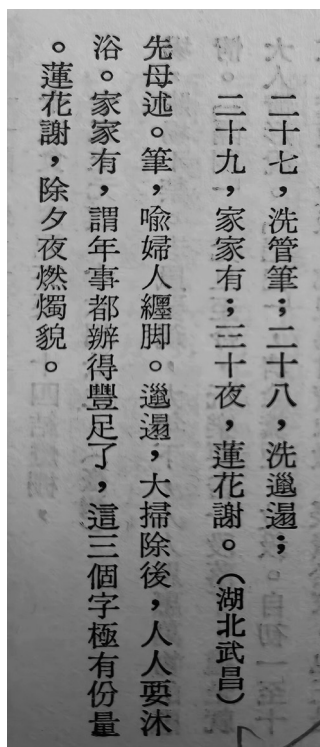 二十七，洗管筆；二十八，洗邋遢；
二十九，家家有；三十夜，蓮花謝。（湖北武昌）
先母述。筆，喻婦人纏脚。邋遢，大掃除後，人人要沐
浴。家家有，謂年事都辦得豐足了，這三個字極有份量
。蓮花謝，除夕夜燃燭貌。